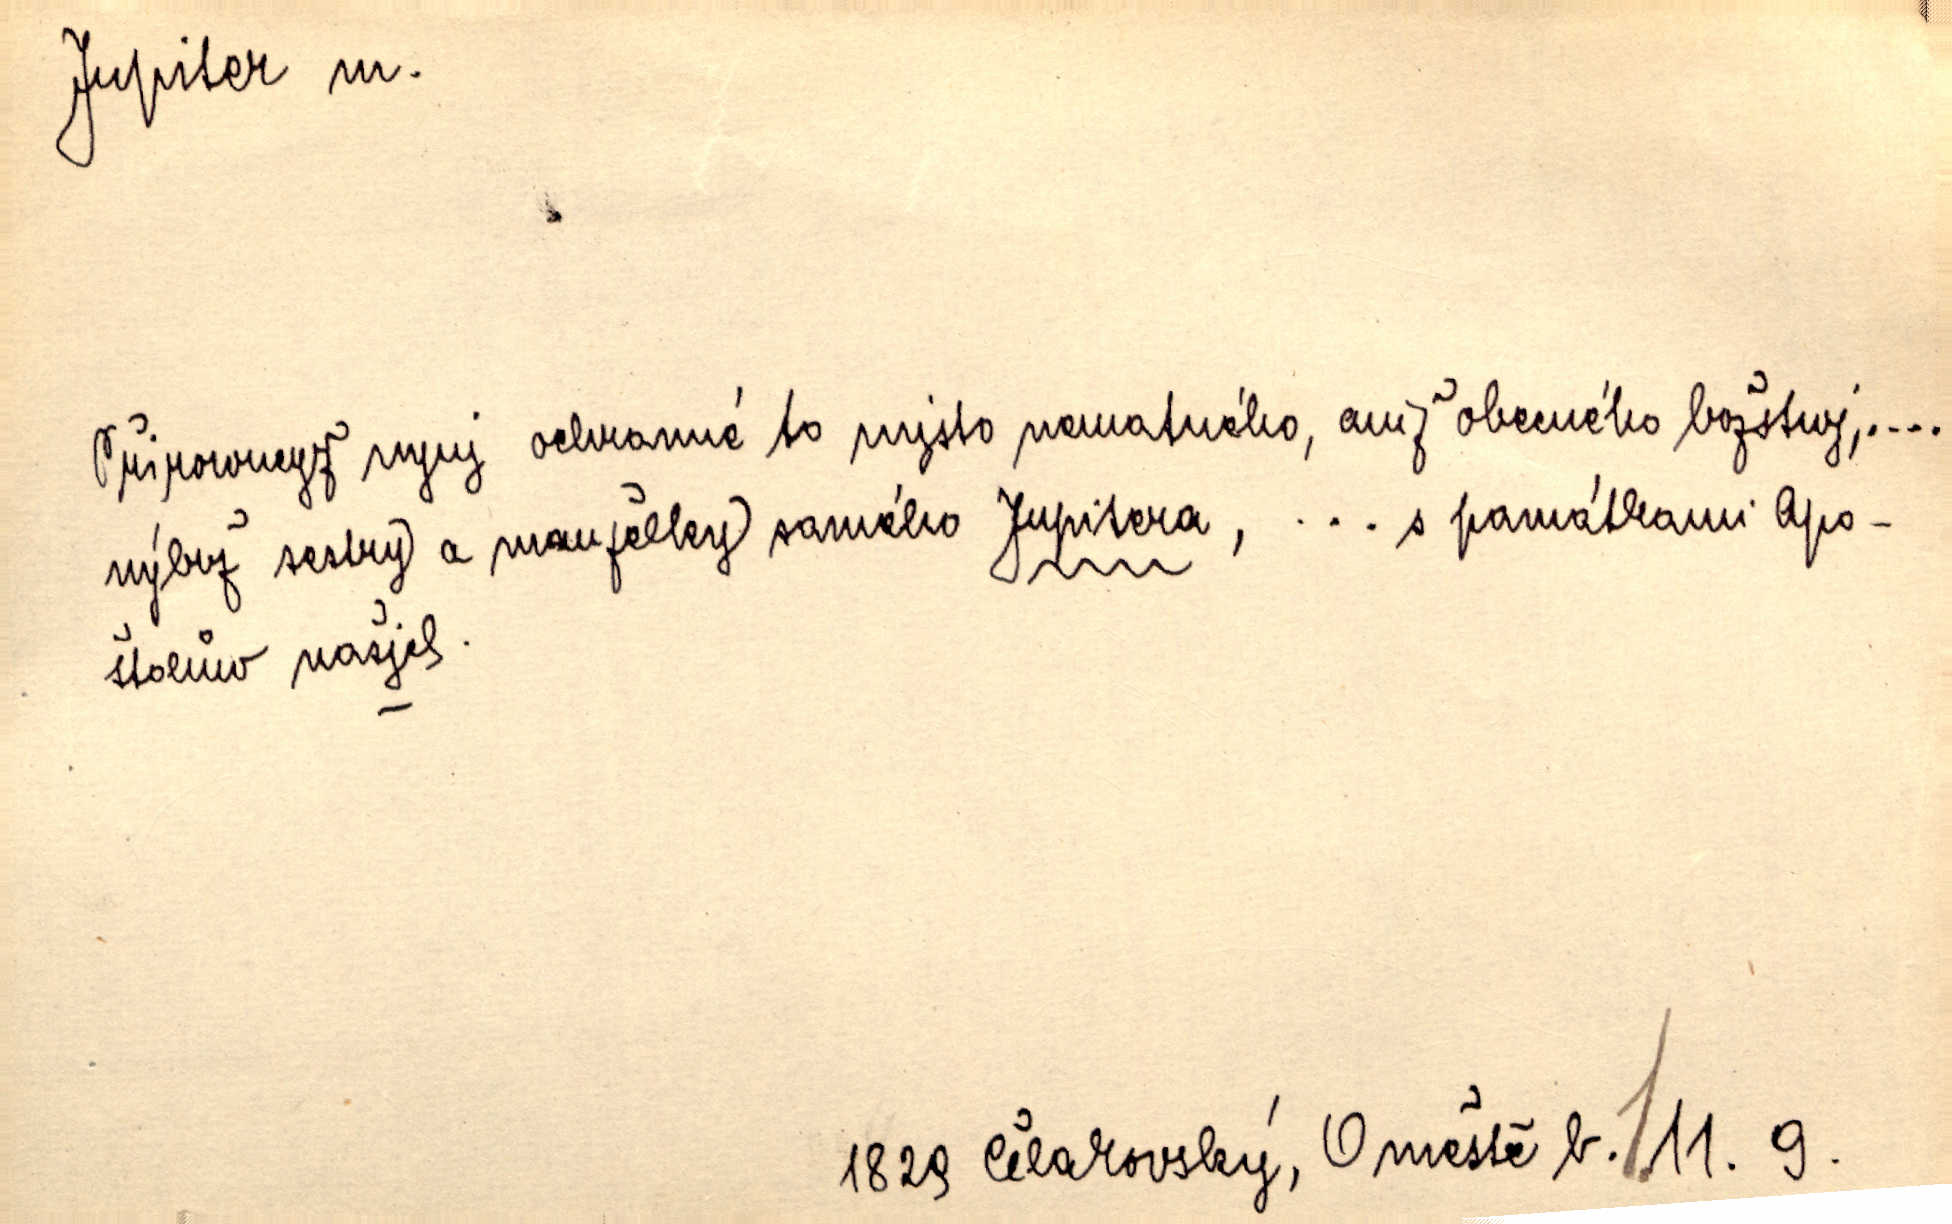 Jupiter m.
Přirownegž nynj ochranné to mjsto nematného, aniž obecného božstwj, ....
nýbrž sestry a manželky samého Jupitera, .... s památkami Apo-
štolůw našjch.
1829 Čelakovský, O městě b. 1. 11. 9.